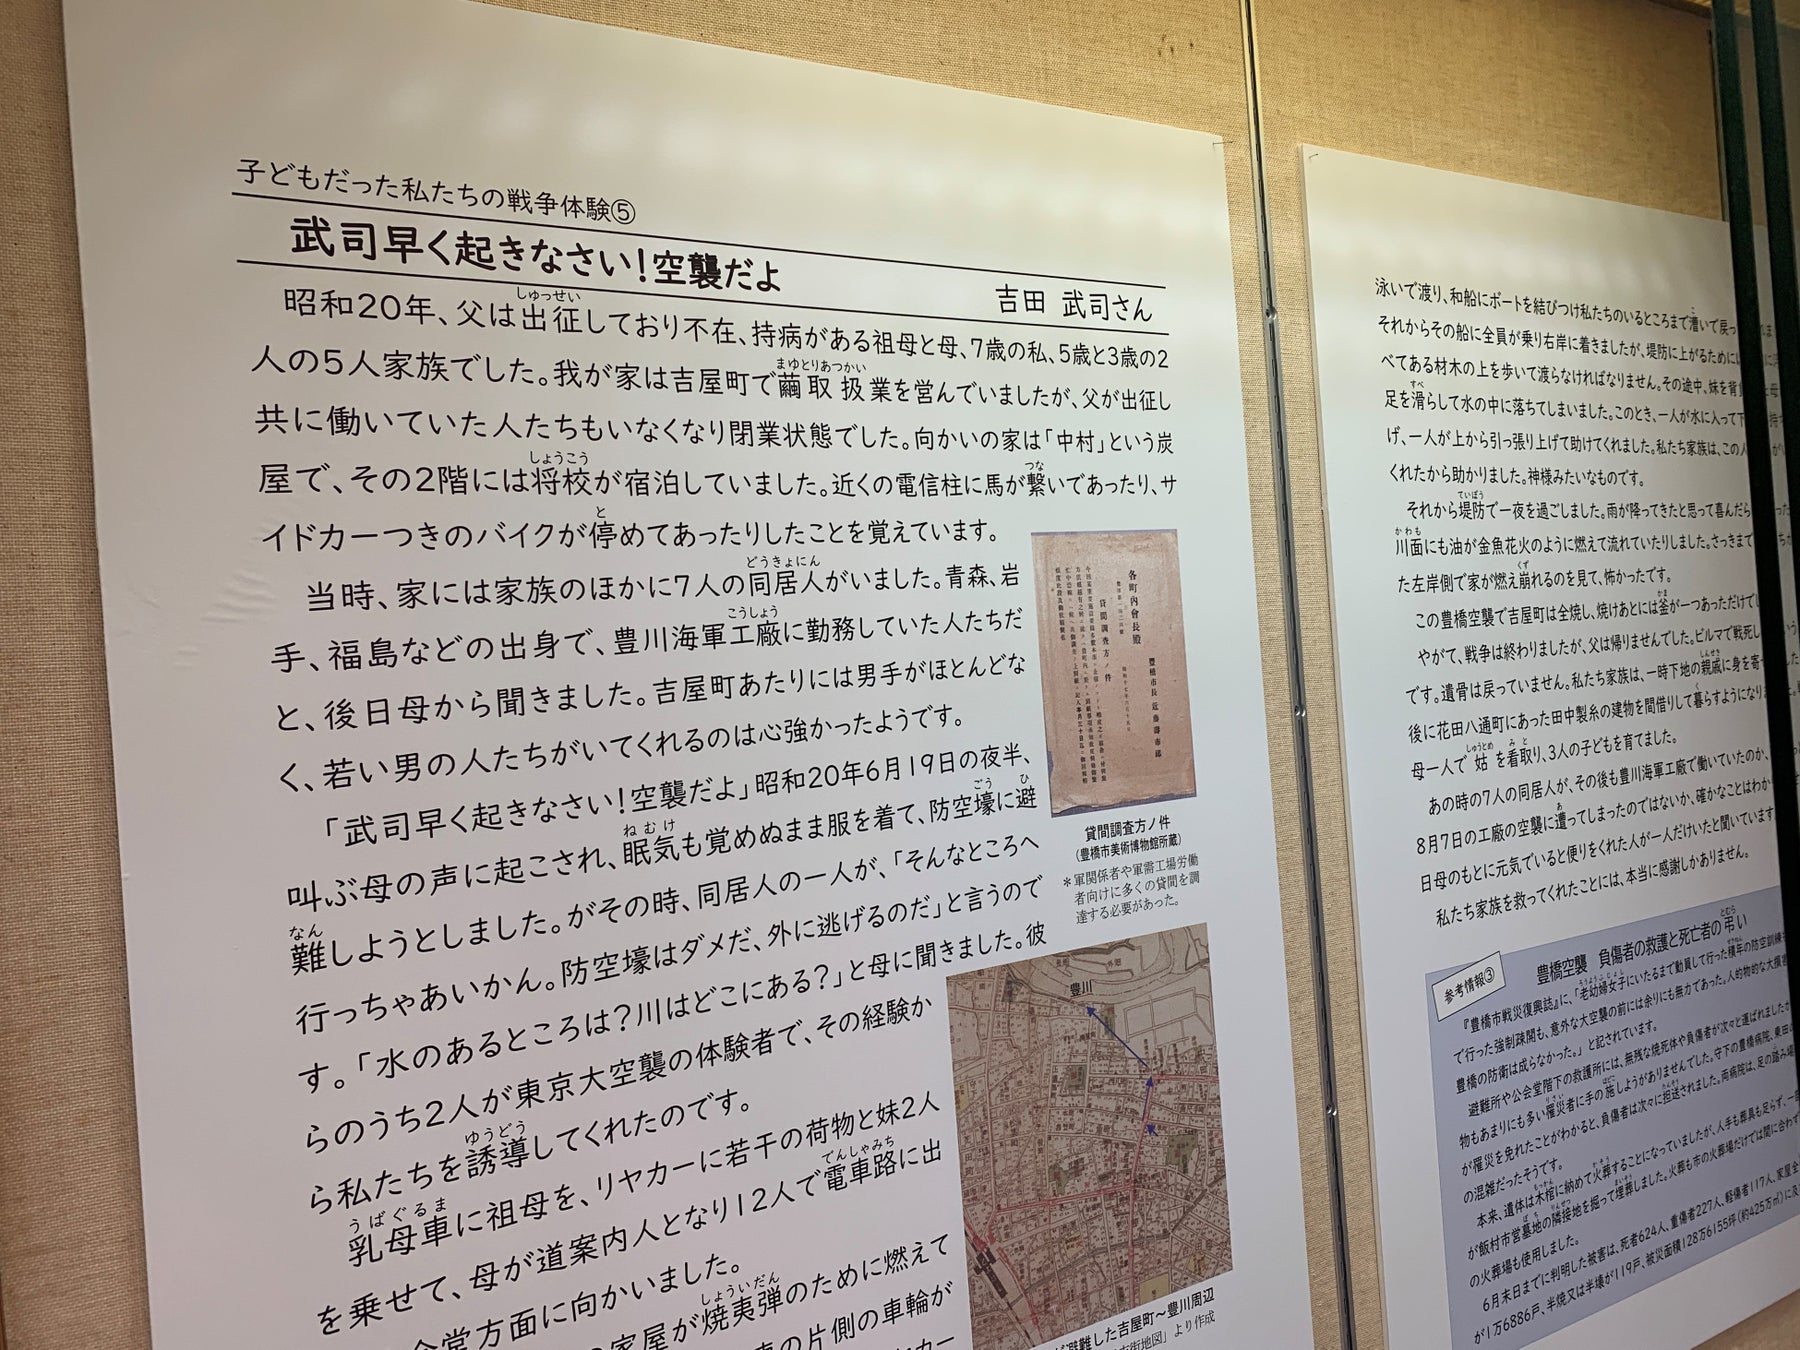 子どもだった私たちの戦争体験⑤
武司早く起きなさい！空襲だよ
吉田 武司さん
昭和20年、父は出征しており不在、持病がある祖母と母、7歳の私、5歳と3歳の2
人の5人家族でした。我が家は吉屋町で繭取扱業を営んでいましたが、父が出征し
共に働いていた人たちもいなくなり閉業状態でした。向かいの家は「中村」という炭
屋で、その2階には将校が宿泊していました。近くの電信柱に馬が繋いであったり、サ
イドカーつきのバイクが停めてあったりしたことを覚えています。
当時、家には家族のほかに7人の同居人がいました。青森、岩
手、福島などの出身で、豊川海軍工廠に勤務していた人たちだ
と、後日母から聞きました。吉屋町あたりには男手がほとんどな
く、若い男の人たちがいてくれるのは心強かったようです。
「武司早く起きなさい！空襲だよ」昭和20年6月19日の夜半、
叫ぶ母の声に起こされ、眠気も覚めぬまま服を着て、防空壕に避
難しようとしました。がその時、同居人の一人が、「そんなところへ
行っちゃあいかん。防空壕はダメだ、外に逃げるのだ」と言うので
す。「水のあるところは？川はどこにある？」と母に聞きました。彼
らのうち2人が東京大空襲の体験者で、その経験か
ら私たちを誘導してくれたのです。
乳母車に祖母を、リヤカーに若干の荷物と妹2人
を乗せて、母が道案内人となり12人で電車路に出
会堂方面に向かいました。
の家屋が焼夷弾のために燃えて
の片側の車輪が
各町内會長殿
豊橋市長 近藤壽市郎
貸間調査方ノ件
貸間調査方ノ件
（豊橋市美術博物館所蔵）
＊軍関係者や軍需工場労働
者向けに多くの貸間を調
達する必要があった。
豊川
避難した吉屋町～豊川周辺
市街地図」より作成
泳いで渡り、和船にボートを結びつけ私たちのいるところまで漕いで戻っ
それからその船に全員が乗り右岸に着きましたが、堤防に上がるために
べてある材木の上を歩いて渡らなければなりません。その途中、妹を背
足を滑らして水の中に落ちてしまいました。このとき、一人が水に入って下
げ、一人が上から引っ張り上げて助けてくれました。私たち家族は、この人
くれたから助かりました。神様みたいなものです。
それから堤防で一夜を過ごしました。雨が降ってきたと思って喜んだら
川面にも油が金魚花火のように燃えて流れていたりしました。さっきまで
た左岸側で家が燃え崩れるのを見て、怖かったです。
この豊橋空襲で吉屋町は全焼し、焼けあとには釜が一つあっただけで
やがて、戦争は終わりましたが、父は帰りませんでした。ビルマで戦死し
です。遺骨は戻っていません。私たち家族は、一時下地の親戚に身を寄
後に花田八通町にあった田中製糸の建物を間借りして暮らすようになり
母一人で姑を看取り、3人の子どもを育てました。
あの時の7人の同居人が、その後も豊川海軍工廠で働いていたのか、
8月7日の工廠の空襲に遭ってしまったのではないか、確かなことはわか
日母のもとに元気でいると便りをくれた人が一人だけいたと聞いています
私たち家族を救ってくれたことには、本当に感謝しかありません。
参考情報③
豊橋空襲 負傷者の救護と死亡者の弔い
『豊橋市戦災復興誌』に、「老幼婦女子にいたるまで動員して行った積年の防空訓練
で行った強制疎開も、意外な大空襲の前には余りにも無力であった。人的物的な大損害
豊橋の防衛は成らなかった。」と記されています。
避難所や公会堂階下の救護所には、無残な焼死体や負傷者が次々と運ばれましたが
物もあまりにも多い罹災者に手の施しようがありませんでした。守下の豊橋病院、東田
が罹災を免れたことがわかると、負傷者は次々に担送されました。両病院は、足の踏み場
の混雑だったそうです。
本来、遺体は木棺に納めて火葬することになっていましたが、人手も葬具も足らず、一
が飯村市営墓地の隣接地を掘って埋葬しました。火葬も市の火葬場だけでは間に合わず
の火葬場も使用しました。
6月末日までに判明した被害は、死者624人、重傷者227人、軽傷者117人、家屋全
が1万6886戸、半焼又は半壊が119戸、被災面積128万6155坪（約425万㎡）に及